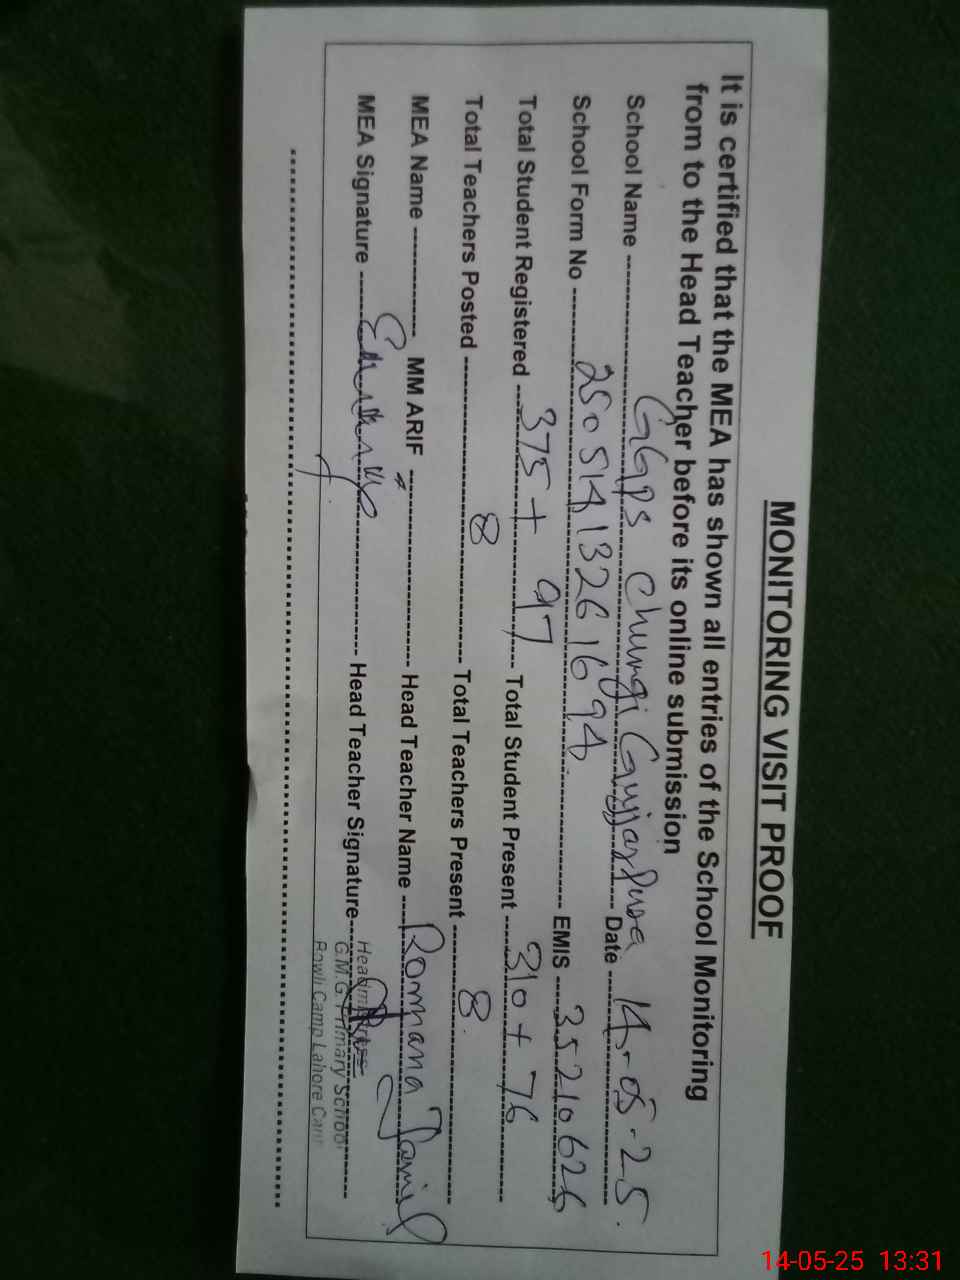 MONITORING VISIT PROOF
It is certified that the MEA has shown all entries of the School Monitoring
from to the Head Teacher before its online submission
School Name GGPS Chungi Gujjarpura Date 14-05-25.
School Form No 2505141326 1694. EMIS 35210626
Total Student Registered 375 + 97 Total Student Present 310 + 76
Total Teachers Posted 8 Total Teachers Present 8.
MEA Name MM ARIF Head Teacher Name Romana Jamil
MEA Signature Head Teacher Signature
G.M.G. Primary School
Camp Lahore Cantt
14-05-25 13:31